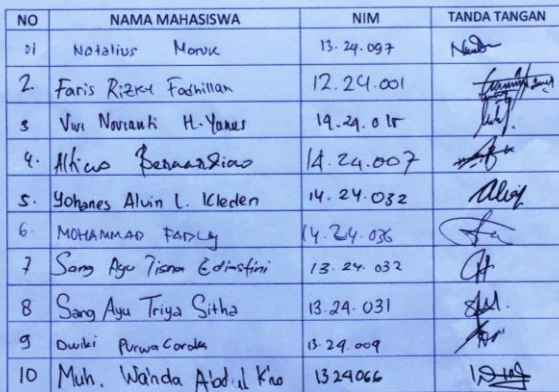 NO NAMA MAHASISWA NIM TANDA TANGAN
01 Natalius Moruk 13.24.097
2. Faris Rizky Fadhillah 12.24.001
3 Vivi Novianti H. Yunus 14.24.015
4. 14.24.007
5. Yohanes Alvin L. Kleden 14.24.032 Alvin
6. MOHAMMAD FADLY 14.24.036
7 Sang Ayu Tisna 13.24.032
8 Sang Ayu Triya Sitha 13.24.031
9 Dwiki Purwa 13.24.009
10 Muh. Wanda Abdul 1324066